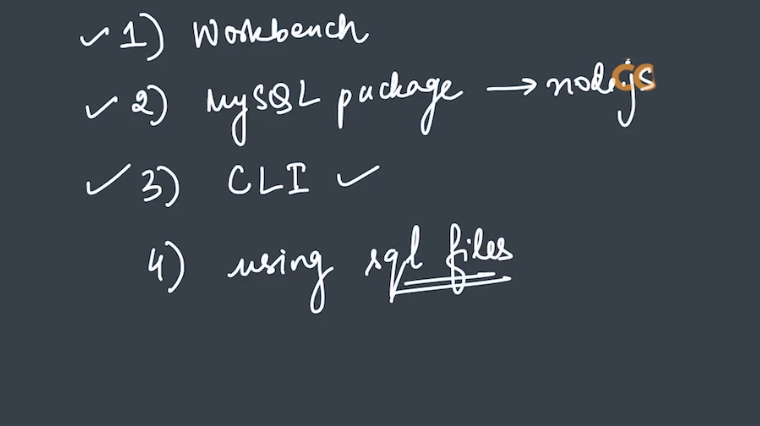 1) Workbench
2) MySQL package → nodejs
3) CLI ✓
4) using sql files